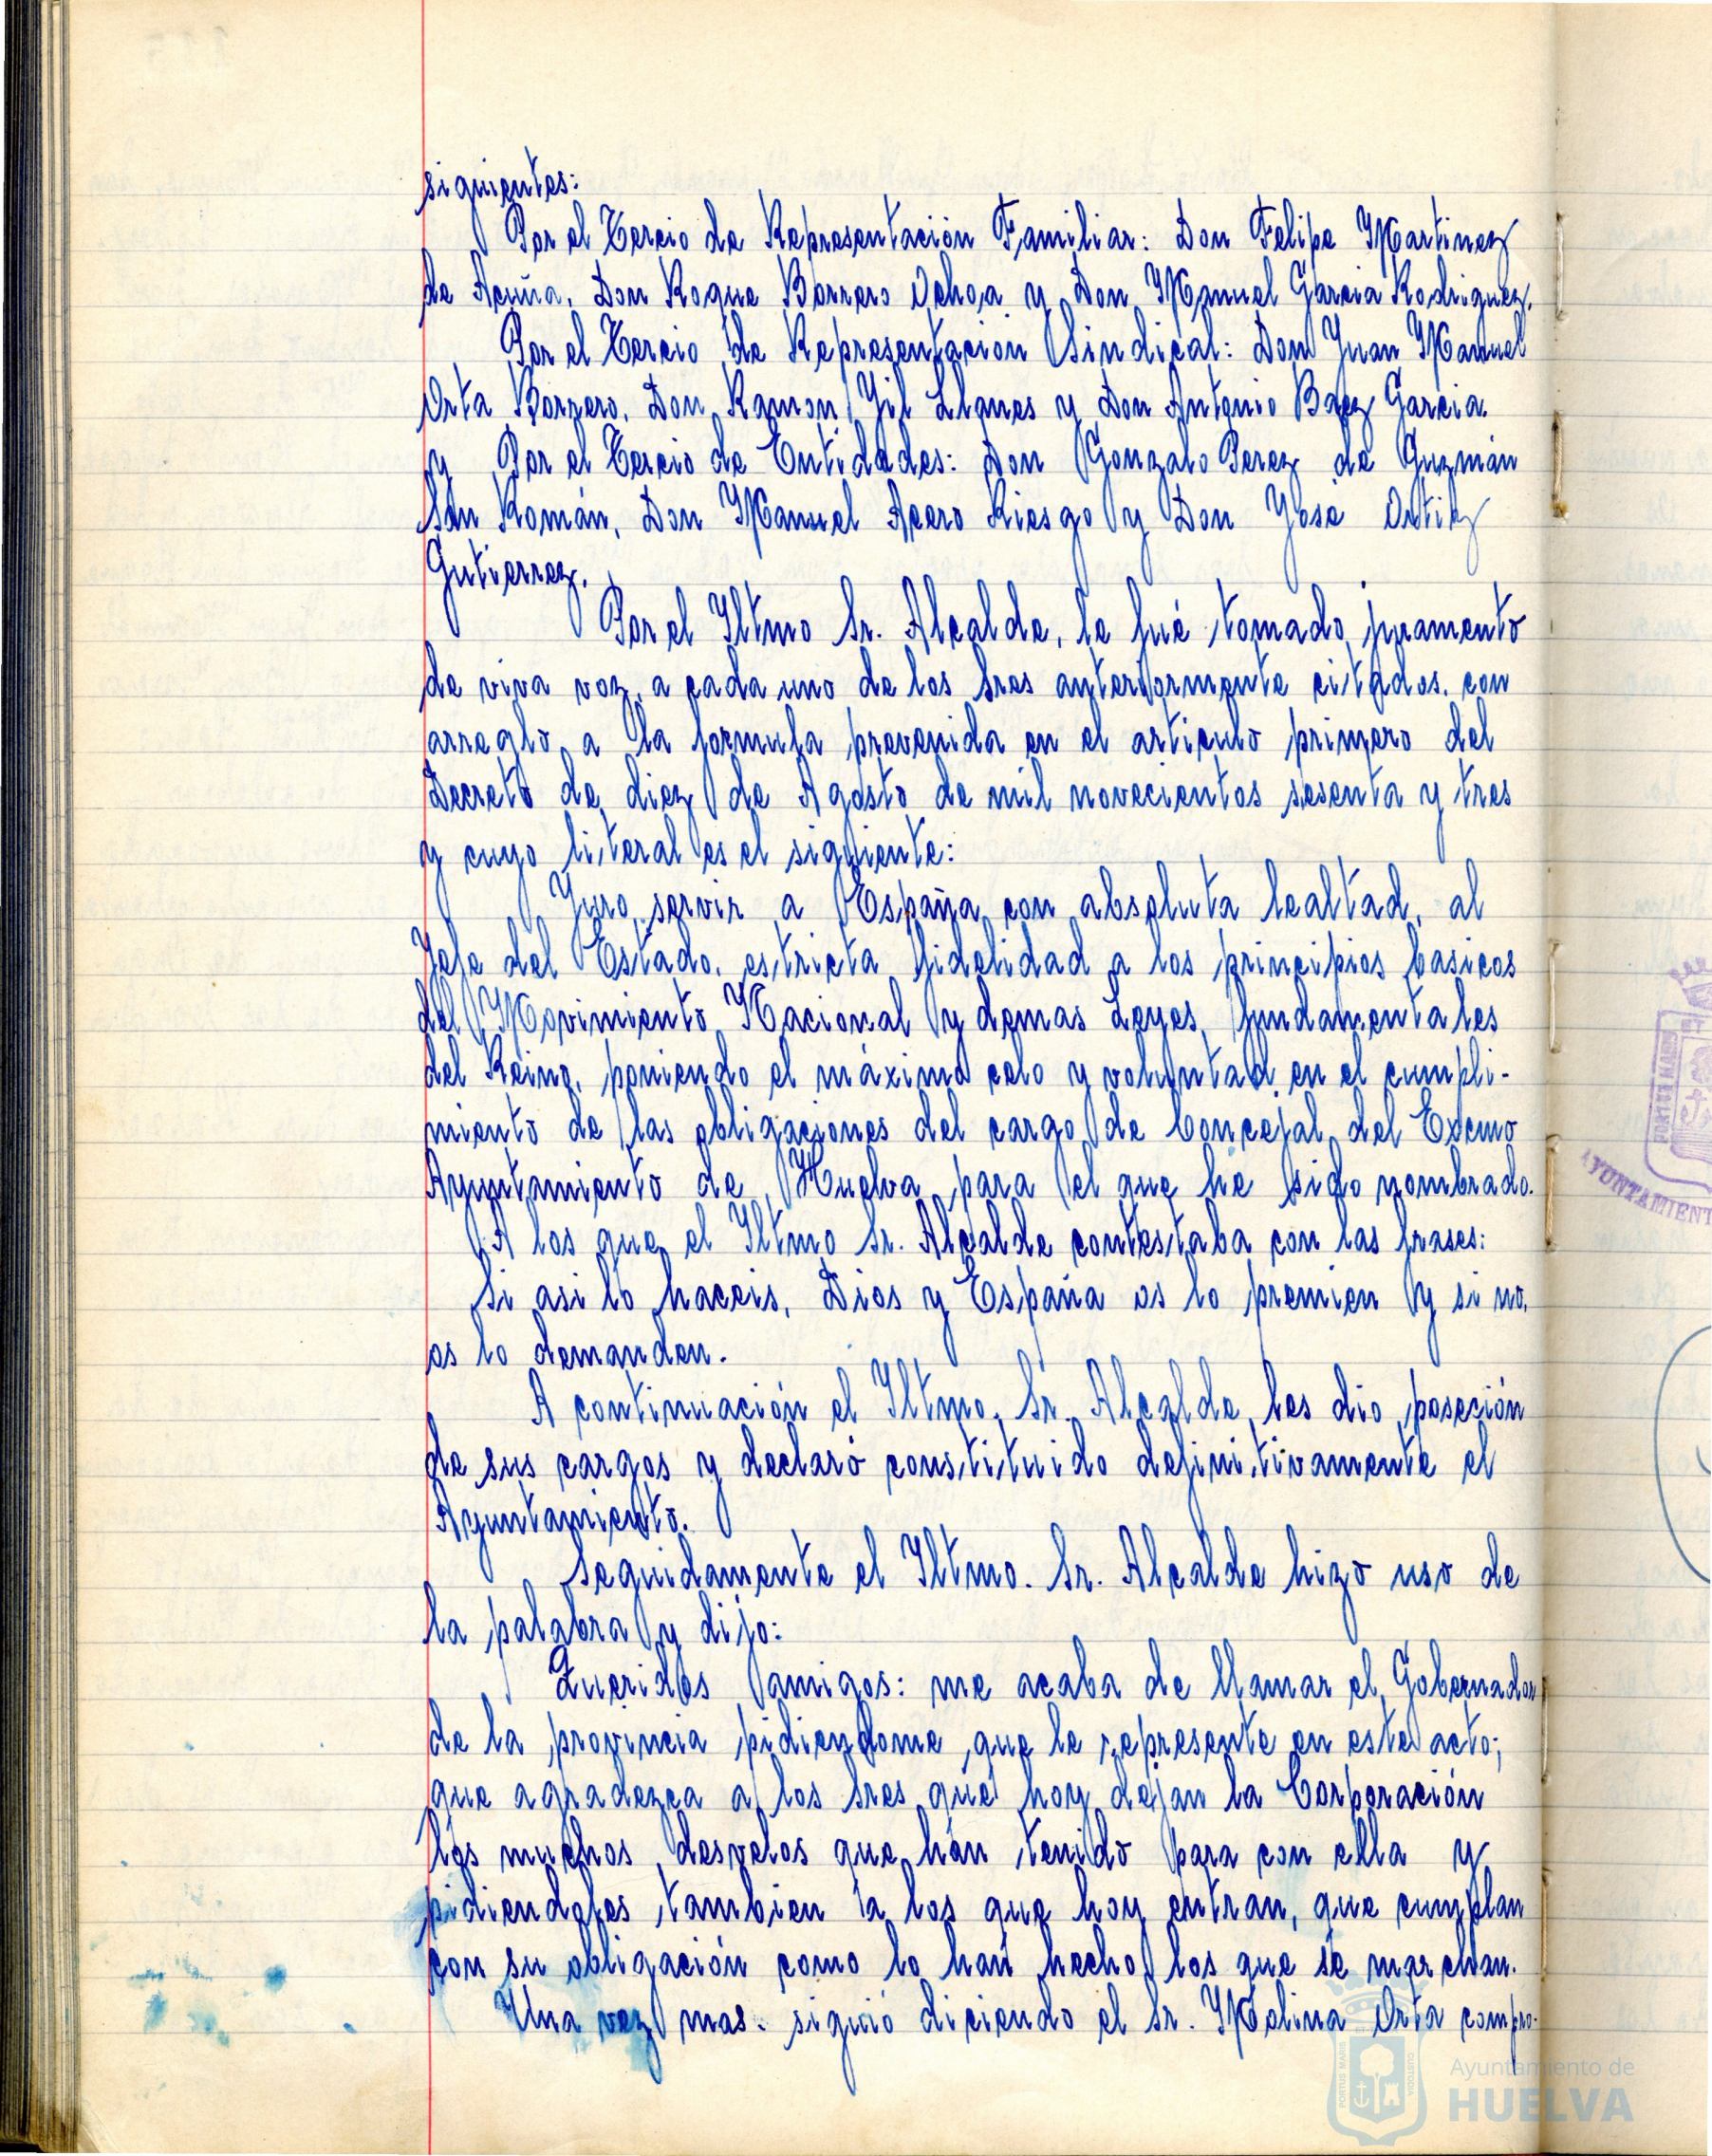 siguientes:
Por el Tercio de Representación Familiar: Don Felipe Martinez
de Acuña, Don Roque Borrero Ochoa y Don Manuel Garcia Rodriguez.
Por el Tercio de Representacion Sindical: Don Juan Manuel
Orta Borrero, Don Ramon Gil Llanes y Don Antonio Baez Garcia.
y Por el Tercio de Entidades: Don Gonzalo Perez de Guzmán
San Román, Don Manuel Acero Riesgo y Don José Ortiz
Gutierrez.
Por el Iltmo Sr. Alcalde, le fué tomado juramento
de viva voz, a cada uno de los Sres anteriormente citados, con
arreglo a la formula prevenida en el articulo primero del
Decreto de diez de Agosto de mil novecientos sesenta y tres
y cuyo literal es el siguiente:
Juro servir a España con absoluta lealtad, al
Jefe del Estado, estricta fidelidad a los principios basicos
del Movimiento Nacional y demas Leyes fundamentales
del Reino, poniendo el máximo celo y voluntad en el cumpli-
miento de las obligaciones del cargo de Concejal del Excmo
Ayuntamiento de Huelva para el que he sido nombrado.
A los que el Iltmo Sr. Alcalde contestaba con las frases:
Si asi lo haceis, Dios y España os lo premien y si no,
os lo demanden.
A continuación el Iltmo. Sr. Alcalde les dio poseción
de sus cargos y declaró constituido definitivamente el
Ayuntamiento.
Seguidamente el Iltmo. Sr. Alcalde hizo uso de
la palabra y dijo:
Queridos amigos: me acaba de llamar el Gobernador
de la provincia pidiendome que le represente en este acto;
que agradezca a los Sres que hoy dejan la Corporación
los muchos desvelos que han tenido para con ella y
pidiendoles tambien a los que hoy entran, que cumplan
con su obligación como lo han hecho los que se marchan.
Una vez mas. siguió diciendo el Sr. Molina Orta compro-
PORTUS MARIS
AYUNTAMIENT
PORTUS MARIS
CUSTODIA
Ayuntamiento de
HUELVA